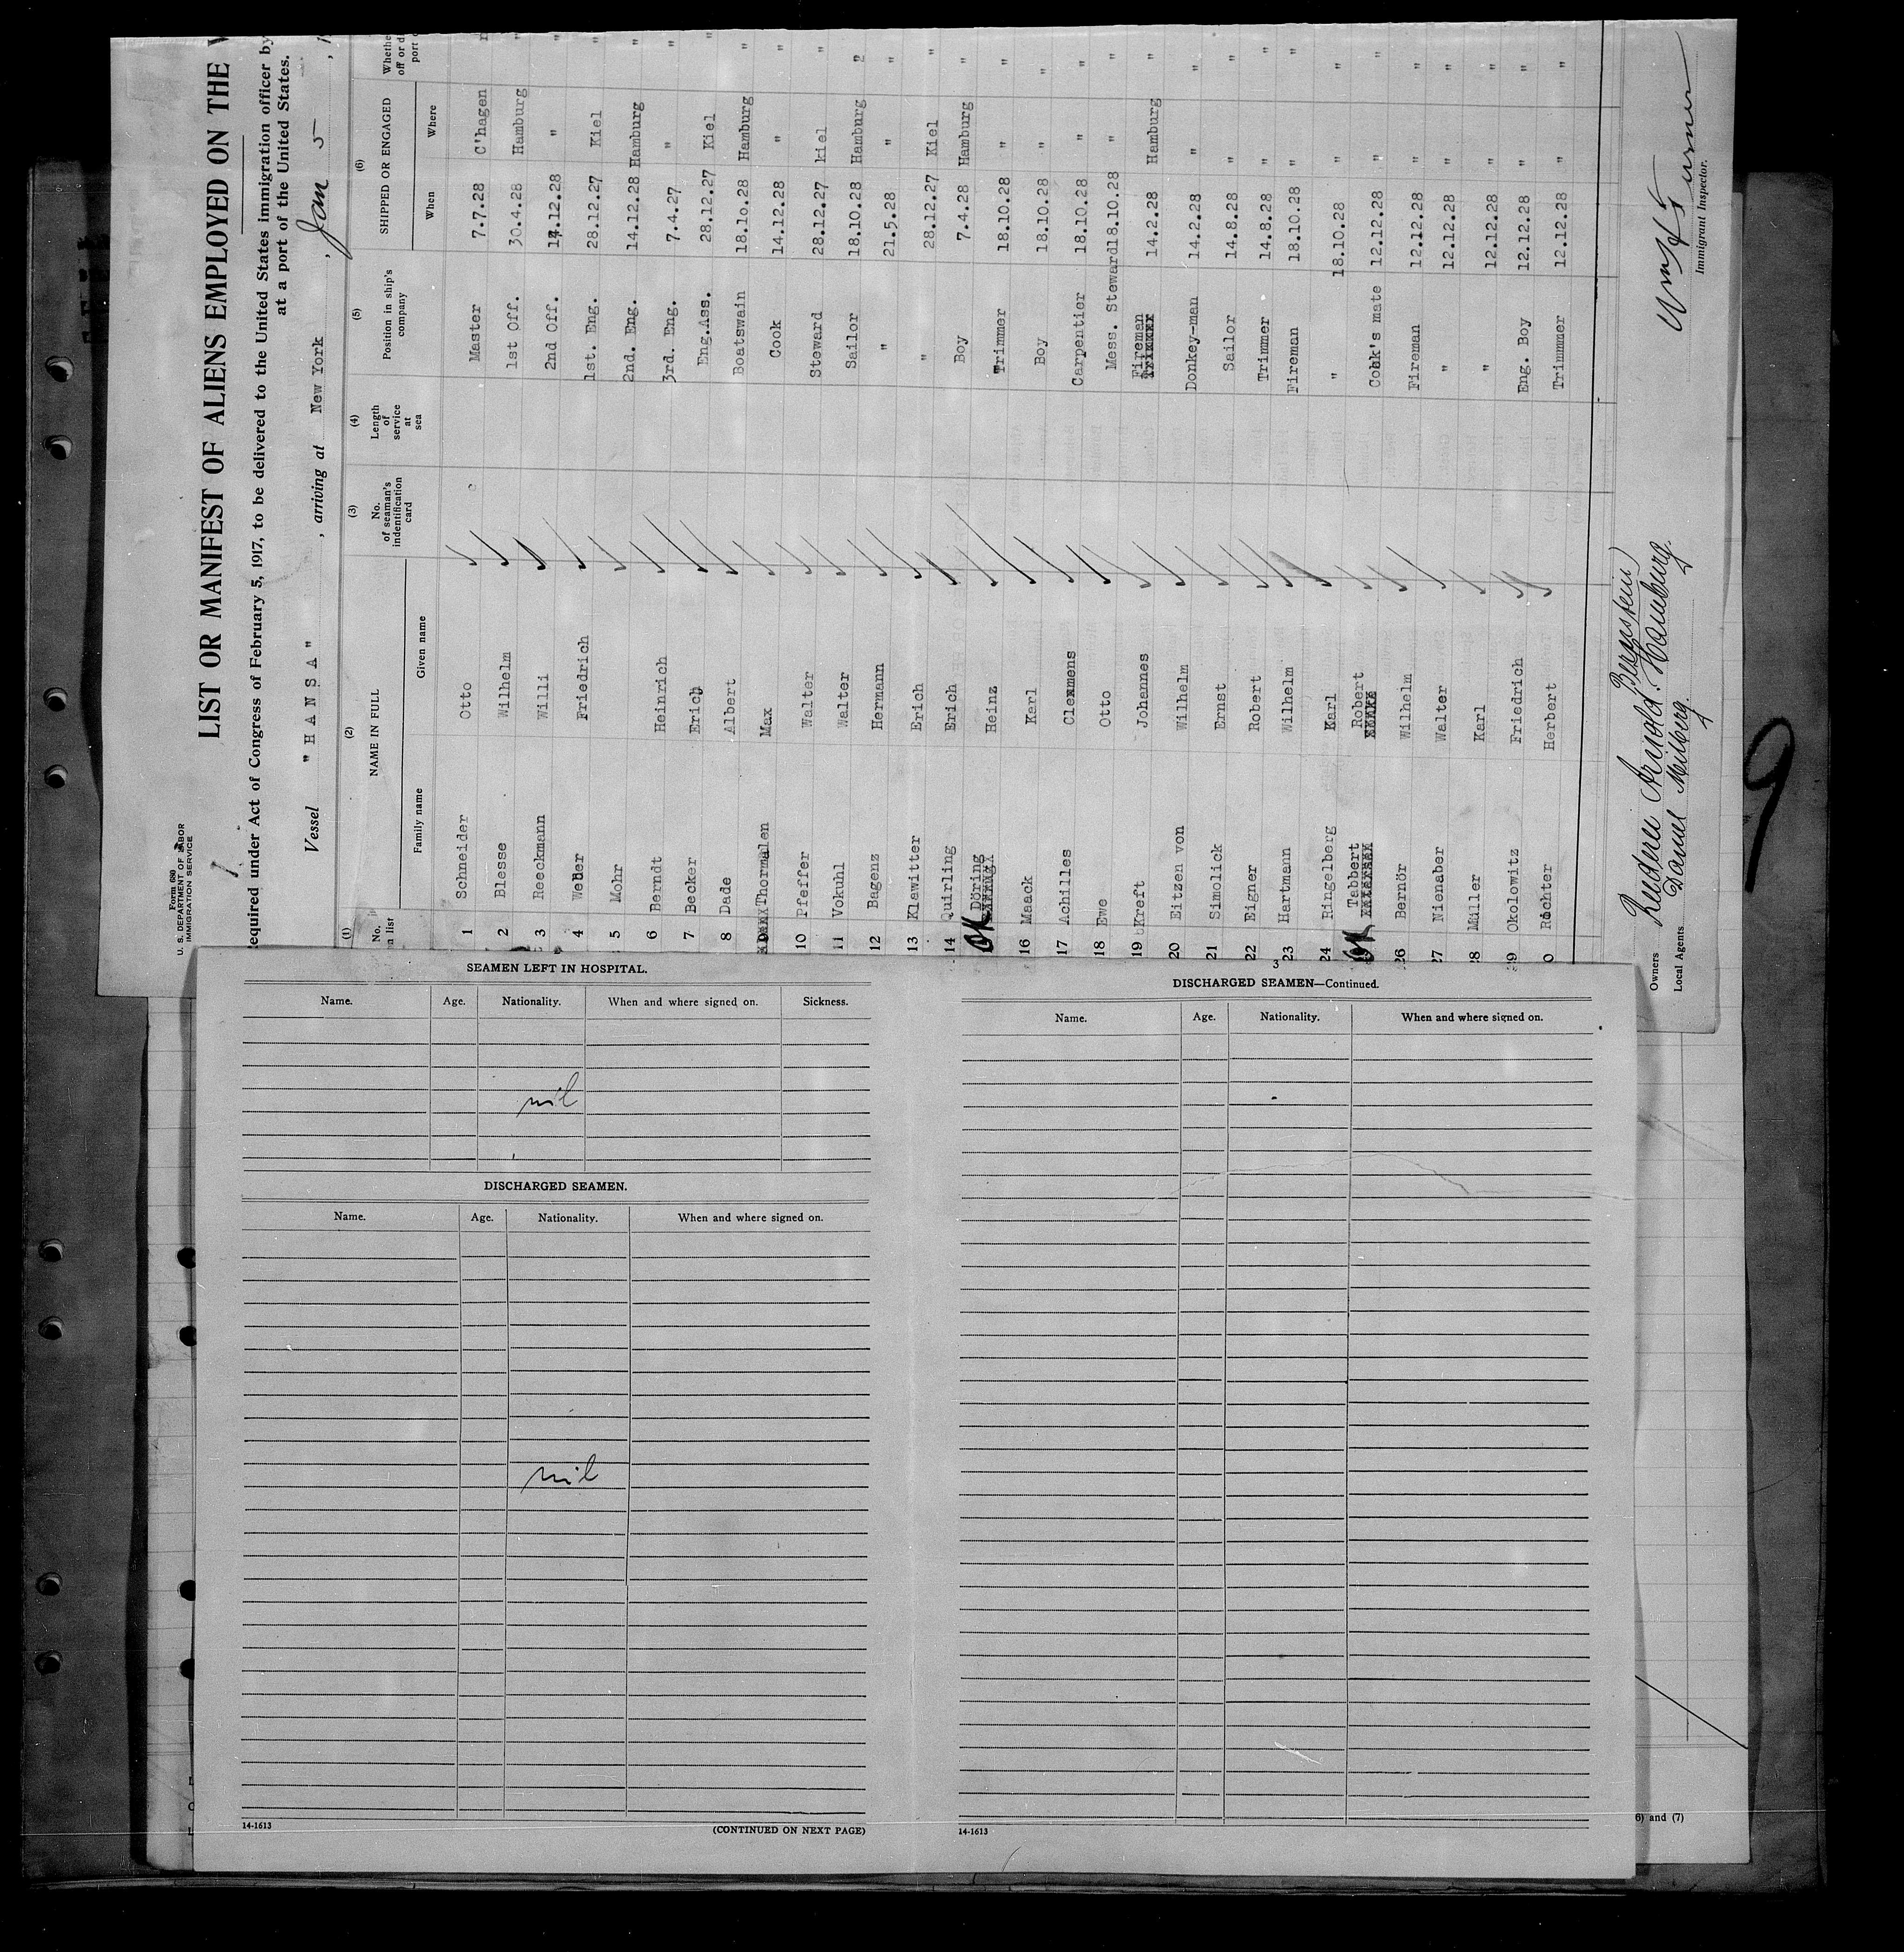 Form 680
U. S. DEPARTMENT OF LABOR
IMMIGRATION SERVICE
LIST OR MANIFEST OF ALIENS EMPLOYED ON THE
equired under Act of Congress of February 5, 1917, to be delivered to the United States immigration officer by
at a port of the United States.
Vessel "HANSA", arriving at New York, Jan 5
(1) (2) (3) (4) (5) (6)
No. n list NAME IN FULL No. of seaman's indentification card Length of service at sea Position in ship's company SHIPPED OR ENGAGED Whethe off or d port
Family name Given name When Where
1 Schneider Otto Master 7.7.28 C'hagen
2 Blesse Wilhelm 1st Off. 30.4.28 Hamburg "
3 Reeckmann Willi 2nd Off. 14.12.28 " "
4 Weber Friedrich 1st. Eng. 28.12.27 Kiel "
5 Mohr 2nd. Eng. 14.12.28 Hamburg "
6 Berndt Heinrich 3rd. Eng. 7.4.27 " "
7 Becker Erich Eng.Ass. 28.12.27 Kiel "
8 Dade Albert Boatswain 18.10.28 Hamburg "
9 Thormalen Max Cook 14.12.28 " "
10 Pfeffer Walter Steward 28.12.27 kiel "
11 Vokuhl Walter Sailor 18.10.28 Hamburg "
12 Bagenz Hermann " 21.5.28 " "
13 Klawitter Erich " 28.12.27 Kiel "
14 Quirling Erich Boy 7.4.28 Hamburg "
OK Döring Heinz Trimmer 18.10.28 " "
16 Maack Karl Boy 18.10.28 " "
17 Achilles Clemens Carpentier 18.10.28 " "
18 Ewe Otto Mess. Steward 18.10.28 " "
19 Kreft Johannes Fireman 14.2.28 Hamburg "
20 Eitzen von Wilhelm Donkey-man 14.2.28 " "
21 Simolick Ernst Sailor 14.8.28 " "
22 Eigner Robert Trimmer 14.8.28 " "
23 Hartmann Wilhelm Fireman 18.10.28 " "
24 Ringelberg Karl " 18.10.28 " "
OK Tabbert Robert Cook's mate 12.12.28 " "
26 Bernör Wilhelm Fireman 12.12.28 " "
27 Nienaber Walter " 12.12.28 " "
28 Müller Karl " 12.12.28 " "
29 Okolowitz Friedrich Eng. Boy 12.12.28 " "
0 Richter Herbert Trimmer 12.12.28 " "
Owners Reederei Arnold Bernstein, Hamburg.
Local Agents. Daniel Milberg.
Immigrant Inspector.
9
SEAMEN LEFT IN HOSPITAL.
Name. Age. Nationality. When and where signed on. Sickness.
nil
DISCHARGED SEAMEN.
Name. Age. Nationality. When and where signed on.
nil
14-1613
(CONTINUED ON NEXT PAGE)
DISCHARGED SEAMEN—Continued.
Name. Age. Nationality. When and where signed on.
14-1613
6) and (7)